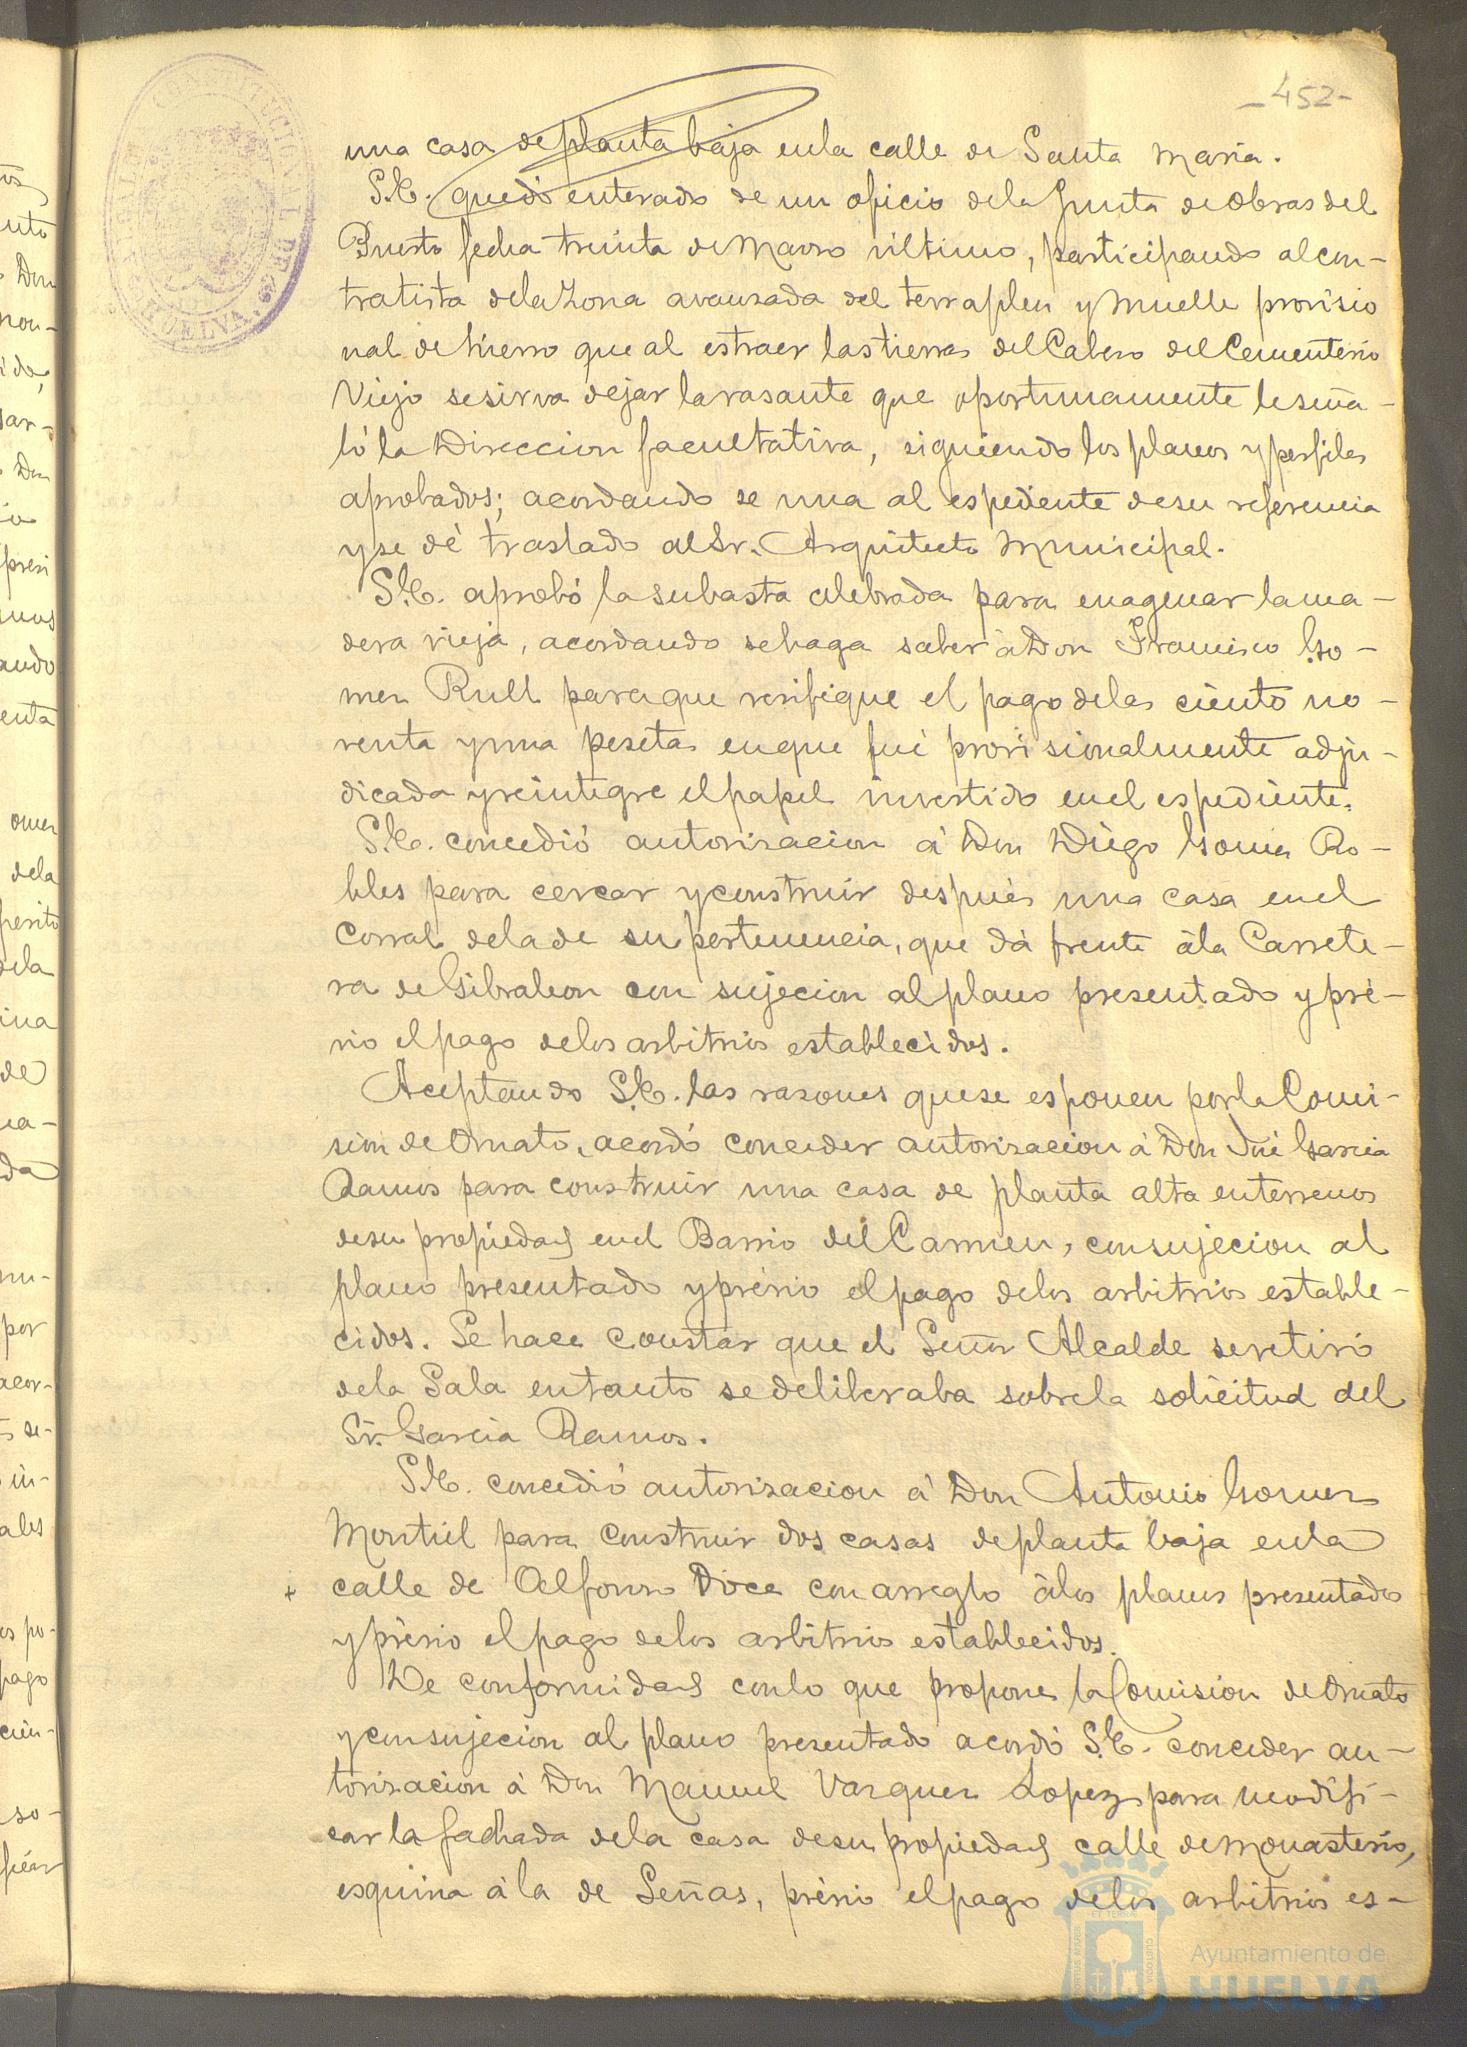 -452-
ALCALDIA CONSTITUCIONAL DE HUELVA.
una casa de planta baja en la calle de Santa Maria.
S.E. quedó enterado de un oficio de la Junta de Obras del
Puerto fecha treinta de Marzo último, participando al con-
tratista de la Zona avanzada del terraplen y Muelle provisio
nal de hierro que al estraer las tierras del Cabezo del Cementerio
Viejo se sirva dejar la rasante que oportunamente le seña-
ló la Direccion facultativa, siguiendo los planos y perfiles
aprobados; acordando se una al espediente de su referencia
y se dé traslado al Sr. Arquitecto Municipal.
S.E. aprobó la subasta celebrada para enagenar la ma-
dera vieja, acordando se haga saber á Don Francisco Go-
mez Rull para que verifique el pago de las ciento no-
venta y una pesetas en que fué provisionalmente adju-
dicada y reintegre el papel invertido en el espediente.
S.E. concedió autorizacion á Don Diego Gomez Ro-
bles para cercar y construir después una casa en el
Corral de la de su pertenencia, que dá frente á la Carrete-
ra de Gibraleon con sujecion al plano presentado y pré-
vio el pago de los arbitrios establecidos.
Aceptando S.E. las razones que se esponen por la Comi-
sion de Ornato, acordó conceder autorizacion á Don José Garcia
Ramos para construir una casa de planta alta en terrenos
de su propiedad en el Barrio del Carmen, con sujecion al
plano presentado y prévio el pago de los arbitrios estable-
cidos. Se hace constar que el Señor Alcalde se retiró
de la Sala en tanto se deliberaba sobre la solicitud del
Sr. Garcia Ramos.
S.E. concedió autorizacion á Don Antonio Gomez
Montiel para construir dos casas de planta baja en la
+ calle de Alfonso Doce con arreglo á los planos presentados
y prévio el pago de los arbitrios establecidos.
De conformidad con lo que propone la Comision de Ornato
y con sujecion al plano presentado acordó S.E. conceder au-
torizacion á Don Manuel Vazquez Lopez para modifi-
car la fachada de la casa de su propiedad calle de Monasterio,
esquina á la de Señas, prévio el pago de los arbitrios es-
Ayuntamiento de
HUELVA